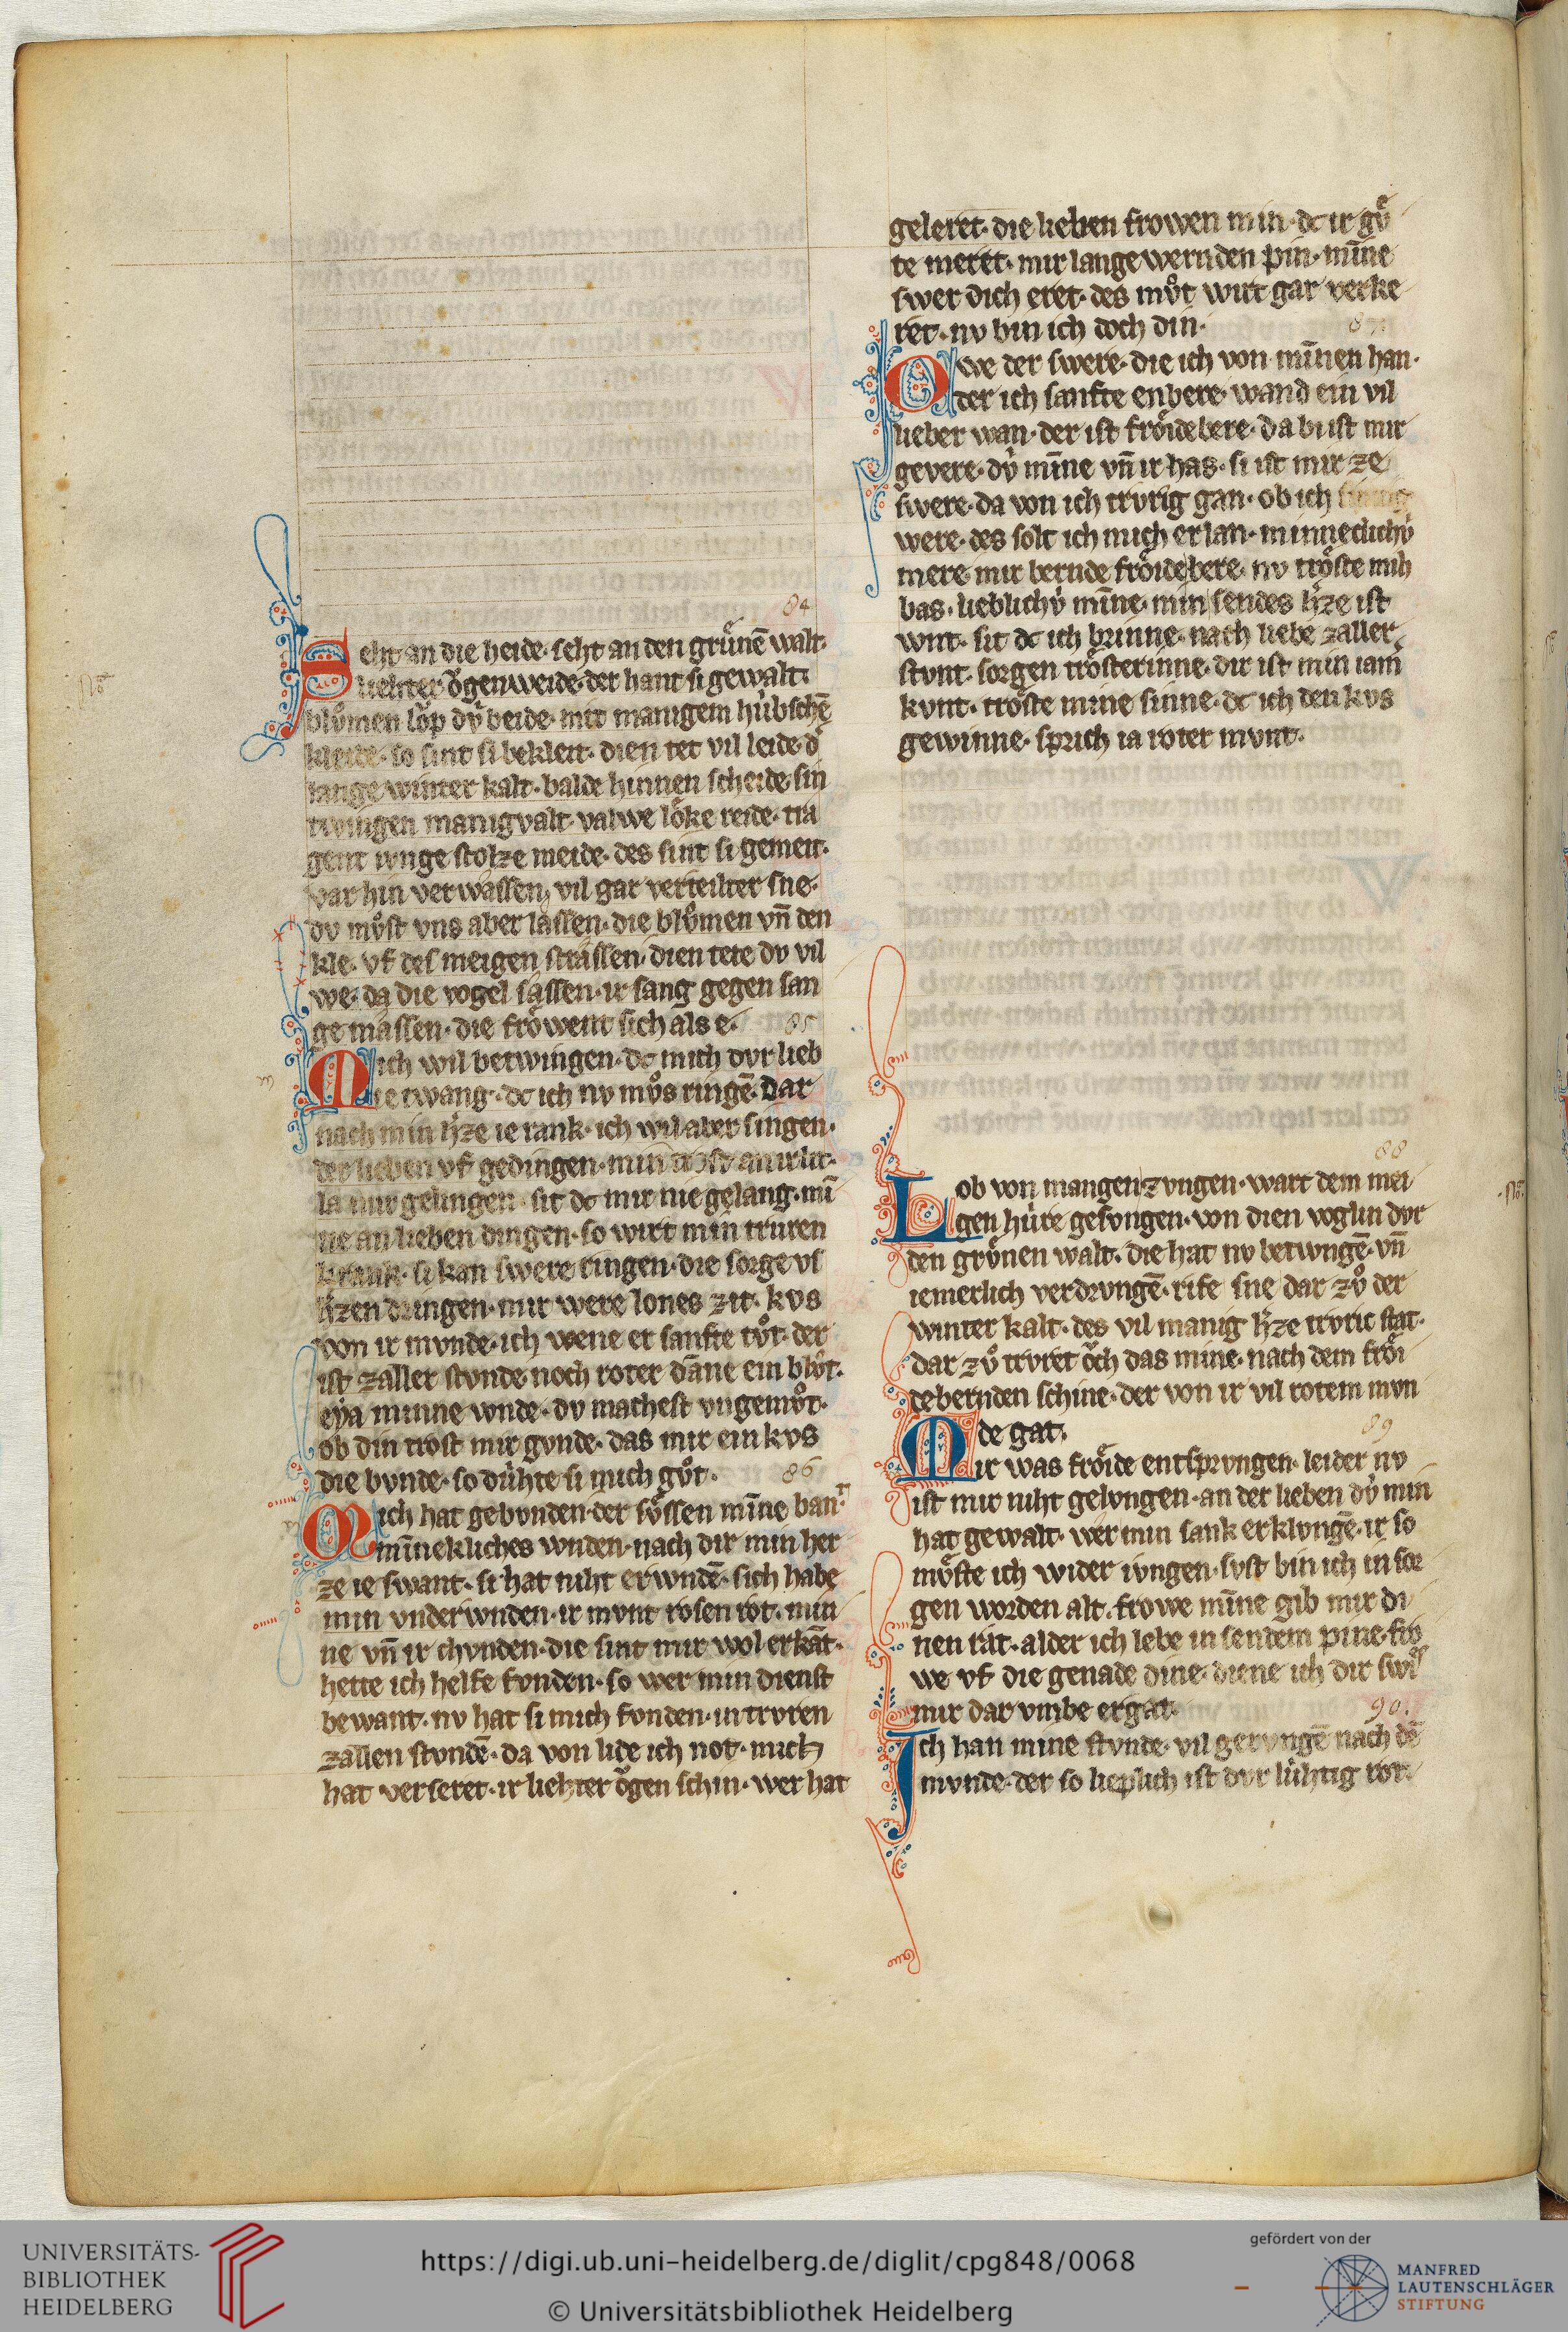 84
Seht an die heide· seht an den grůnē walt·
liehter ǒgenweide· der hant si gewalt·
blůmen lǒp dv́ beide· mit manigem húbschē
kleide· so sint si bekleit· dien tet vil leide· d͛
lange winter kalt· balde hinnen scheide· sin
twingen manigvalt· valwe lǒke reide· tra
gent ivnge stolze meide· des sint si gemeit·
var hin verwâssen, vil gar verteilter sne·
dv mv̊st vns aber lâssen· die blůmen vn̄ den
kle· vf des meigen strâssen· dien tete dv vil
we· da die vogel sâssen· ir sang gegen san
ge mâssen· die frǒwent sich als e·
85
Mich wil betwingen· dc mich dvr lieb
ie twang· dc ich nv mv̊s ringē· dar
nach min h͛ze ie rank· ich wil aber singen·
der lieben vf gedingen· min trost an ir lit·
la mir gelingen· sit dc mir nie gelang· mī
ne an lieben dingen· so wirt min truren
krank· si kan swere ringen· die sorge vs
h͛zen dringen· mir were lones zit· kvs
von ir mvnde· ich wene er sanfte tv̊t· der
ist zaller stvnde noch roter dāne ein blv̊t·
eẏa minne wnde· dv machest vngemv̊t·
ob din trost mir gvnde· das mir ein kvs
die bvnde· so dv́hte si mich gv̊t·
86
Mich hat gebvnden· der sv̊ssen mīne ban·t
mīnekliches wnden· nach dir min her
ze ie swant· si hat niht erwndē· sich habe
min vnderwnden· ir mvnt rosen rot· min
ne vn̄ ir chvnden· die sint mir wol erkāt·
hette ich helfe fvnden· so wer min dienst
bewant· nv hat si mich fvnden· in trvren
zallen stvndē· da von lide ich not· mich
hat verseret· ir liehter ǒgen schin· wer hat
geleret· die lieben frowen min· dc ir gv̊
te meret· mir lange wernden pin· mīne
swer dich eret· des mv̊t wirt gar verke
ret· nv bin ich doch din·
87
Owe der swere· die ich von mīnen han·
der ich sanfte enbere· wand ein vil
lieber wan· der ist frǒidebere· da bi ist mir
gevere· dv́ mīne vn̄ ir has· si ist mir ze
swere· da von ich trvrig gan· ob ich sinnig
were· des solt ich mich erlan· minneclichv́
mere mir bernde frǒidebere· nv trǒste mih
bas· lieblichv́ mīne· min sendes h͛ze ist
wnt· sit dc ich brinne· nach liebe zaller
stvnt· sorgen trǒsterinne· dir ist min iam͛
kvnt· trǒste mine sinne· dc ich den kvs
gewinne· sprich ia roter mvnt·
88
Lob von mangen zvngen· wart dem mei
gen hv́re gesvngen· von dien voglin dvr
den grv̊nen walt· die hat nv betwngē· vn̄
iemerlich verdrvngē· rife sne dar zv̊ der
winter kalt· des vil manig h͛ze trvric stat·
dar zv̊ trvret ǒch das mine· nach dem frǒi
debernden schine· der von ir vil rotem mvn
de gat·
89
Mir was frǒide entsprvngen· leider nv
ist mir niht gelvngen· an der lieben dv́ min
hat gewalt· wer min sank erklvngē· ir so
mv̊ste ich wider ivngen· svst bin ich in sor
gen worden alt· frowe mīne gib mir di
nen rât· alder ich lebe in sendem pine· fro
we vf die genade dine· diene ich dir swi͛
mir dar vmbe ergat·
90·
Ich han mine stvnde· vil gervngē nach dē
mvnde· der so lieplich ist dvr lv́htig rot·
UNIVERSITÄTS-
BIBLIOTHEK
HEIDELBERG
https://digi.ub.uni-heidelberg.de/diglit/cpg848/0068
© Universitätsbibliothek Heidelberg
gefördert von der
MANFRED
LAUTENSCHLÄGER
STIFTUNG